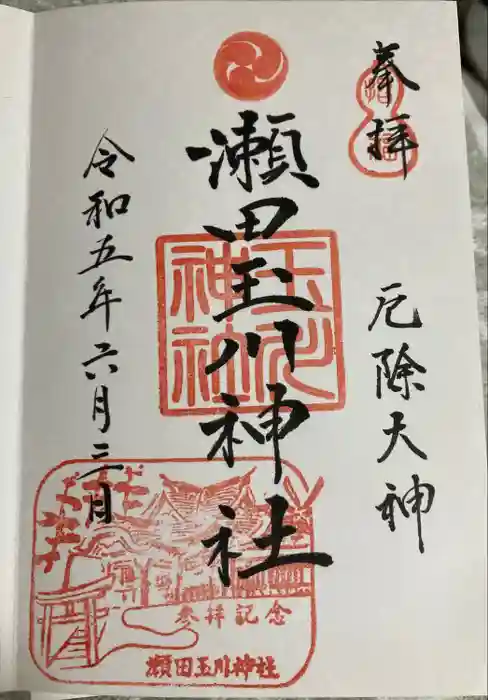 奉拝
厄除大神
瀬田玉川神社
玉川神社
令和五年六月三日
参拝記念
瀬田玉川神社